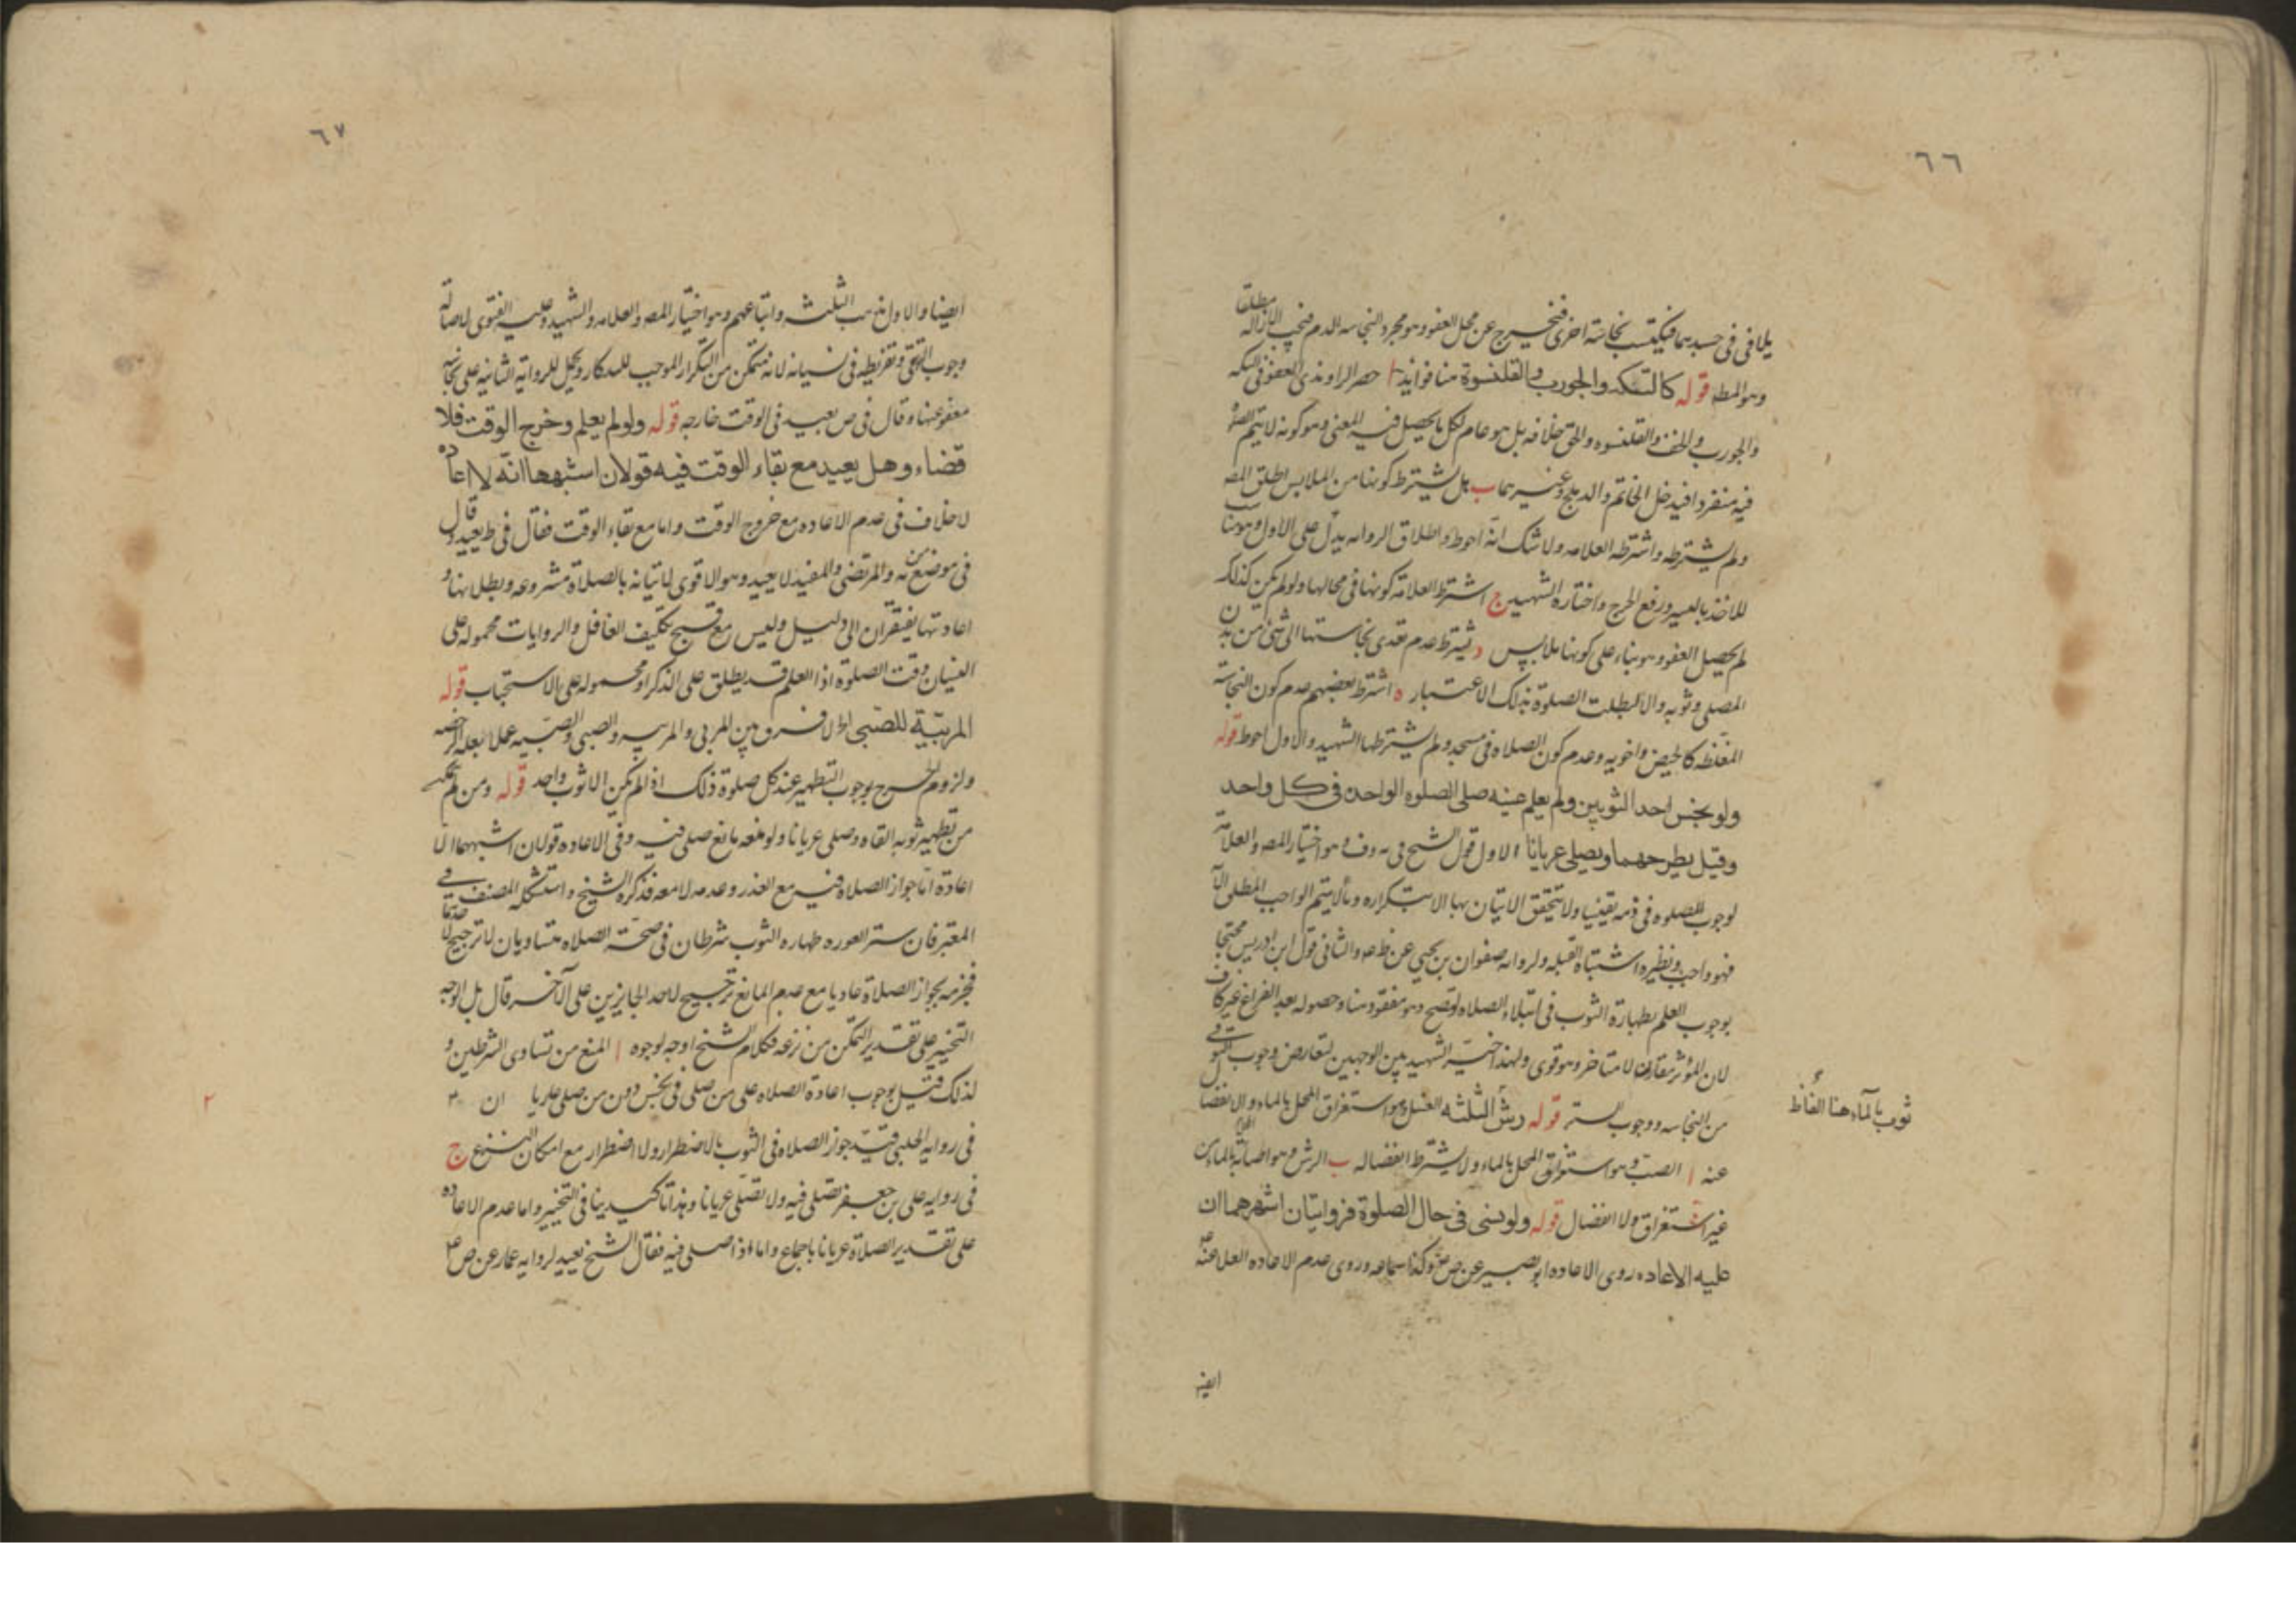 ٦٦
يلاقي في جسدهما فيكتسب نجاسة اخرى فيخرج عن محل العفو وهو مجرد النجاسه الدم فيجب الازالة مطلقا
وهو المط قوله كالتكه والجورب والقلنسوة هنا فوايد ا حصر الراوندي العفو في التكه
والجورب والخف والقلنسوه والحق خلافه بل هو عام لكل ما يحصل فيه المعنى وهو كونه لا يتم الصلوة
فيه منفردا فيدخل الخاتم والدملج وغيرهما ب هل يشترط كونها من الملابس اطلق المص
ولم يشترطه واشترطه العلامه ولا شك انه احوط واطلاق الروايه يدل على الاول وهو انسب
للاخذ باليسر ورفع الحرج واختاره الشهيد ج اشترط العلامة كونها في محالها ولو لم يكن كذلك
لم يحصل العفو وهو بناء على كونها ملابس د يشترط عدم تعدي نجاستها الى شئ من بدن
المصلي وثوبه والا لبطلت الصلوة بذلك الاعتبار ه اشترط بعضهم عدم كون النجاسة
المغلظه كالحيض واخويه وعدم كون الصلاه في مسجد ولم يشترطها الشهيد والاول احوط قوله
ولو نجس احد الثوبين ولم يعلم عينه صلى الصلوه الواحدة في كل واحد
وقيل يطرحهما ويصلي عريانا الاول قول الشيخ في يه وف وهو اختيار المص والعلامة
لوجوب الصلوه في ذمه يقينا ولا يتحقق الاتيان بها الا بتكراره وما لا يتم الواجب المطلق الا به
فهو واجب ونظيره اشتباه القبله ولروايه صفوان بن يحيى عن ظم ع والثاني قول ابن ادريس محتجا
بوجوب العلم بطهارة الثوب في ابتداء الصلاه لتصح وهو مفقود هنا وحصوله بعد الفراغ غير كاف
لان المؤثر مقارن لا متاخر وهو قوى ولهذا خير الشهيد بين الوجهين لتعارض وجوب التوقي
من النجاسه ووجوب الستر قوله رش الثلثه الغسل وهو استغراق المحل بالماء والانفصال
عنه ا الصب وهو استغراق المحل بالماء ولا يشترط انفصاله ب الرش وهو اصابة الماء من
غير استغراق ولا انفصال قوله ولو نسي في حال الصلوة فروايتان اشهرهما ان
عليه الاعاده روى الاعاده ابو بصير عن ص وكذا سماعه وروى عدم الاعاده العلا عنه
ايضا
ثوب بالماء هنا الفاظ
٦٧
ايضا والاول مذهب الثلثه واتباعهم وهو اختيار المص والعلامه والشهيد وعليه الفتوى لاصالة
وجوب التوقي وتفريطه في نسيانه لانه متمكن من التكرار الموجب للتذكار ويحمل الرواية الثانيه على نجاسة
معفو عنها وقال في ص يعيد في الوقت خارجه قوله ولو لم يعلم وخرج الوقت فلا
قضاء وهل يعيد مع بقاء الوقت فيه قولان اشبهها انه لا اعاده
لا خلاف في عدم الاعاده مع خروج الوقت واما مع بقاء الوقت فقال في ط يعيد وقال
في موضع من يه والمرتضى والمفيد لا يعيد وهو الاقوى لاتيانه بالصلاة مشروعه وبطلانها و
اعادتها يفتقران الى دليل وليس مع قبح تكليف الغافل والروايات محموله على
النسيان وقت الصلوة اذا العلم قد يطلق على الذكر او محموله على الاستحباب قوله
المربّية للصّبي اذ لا فرق بين المربي والمربيه والصبي والصبيه عملا بعلة الرخصه
ولزوم الحرج بوجوب التطهير عند كل صلوة ذلك اذا لم يكن الا ثوب واحد قوله ومن لم يتمكن
من تطهير ثوبه القاه وصلى عريانا ولو منعه مانع صلى فيه وفي الاعاده قولان اشبههما الا
اعادة اما جواز الصلاه فيه مع العذر وعدمه لا معه فذكره الشيخ واستشكله المصنف في
المعتبر فان ستر العوره طهاره الثوب شرطان في صحة الصلاه متساويان لا ترجيح لاحدهما
فجزمه بجواز الصلاة عاريا مع عدم المانع ترجيح لاحد الجايزين على الآخر قال بل الوجه
التخيير على تقدير التمكن من نزعه فكلام الشيخ اوجه لوجوه ا المنع من تساوى الشرطين و
لذلك قيل بوجوب اعادة الصلاه على من صلى في نجس دون من صلى عاريا ان
في روايه الحلبي قيّد جواز الصلاه في الثوب بالاضطرار ولا اضطرار مع امكان النزع ج
في روايه علي بن جعفر يصلي فيه ولا يصلي عريانا وهذا تاكيد ينافي التخيير واما عدم الاعاده
على تقدير الصلاة عريانا باجماع واما اذا صلى فيه فقال الشيخ يعيد لروايه عمار عن ص ع
٢